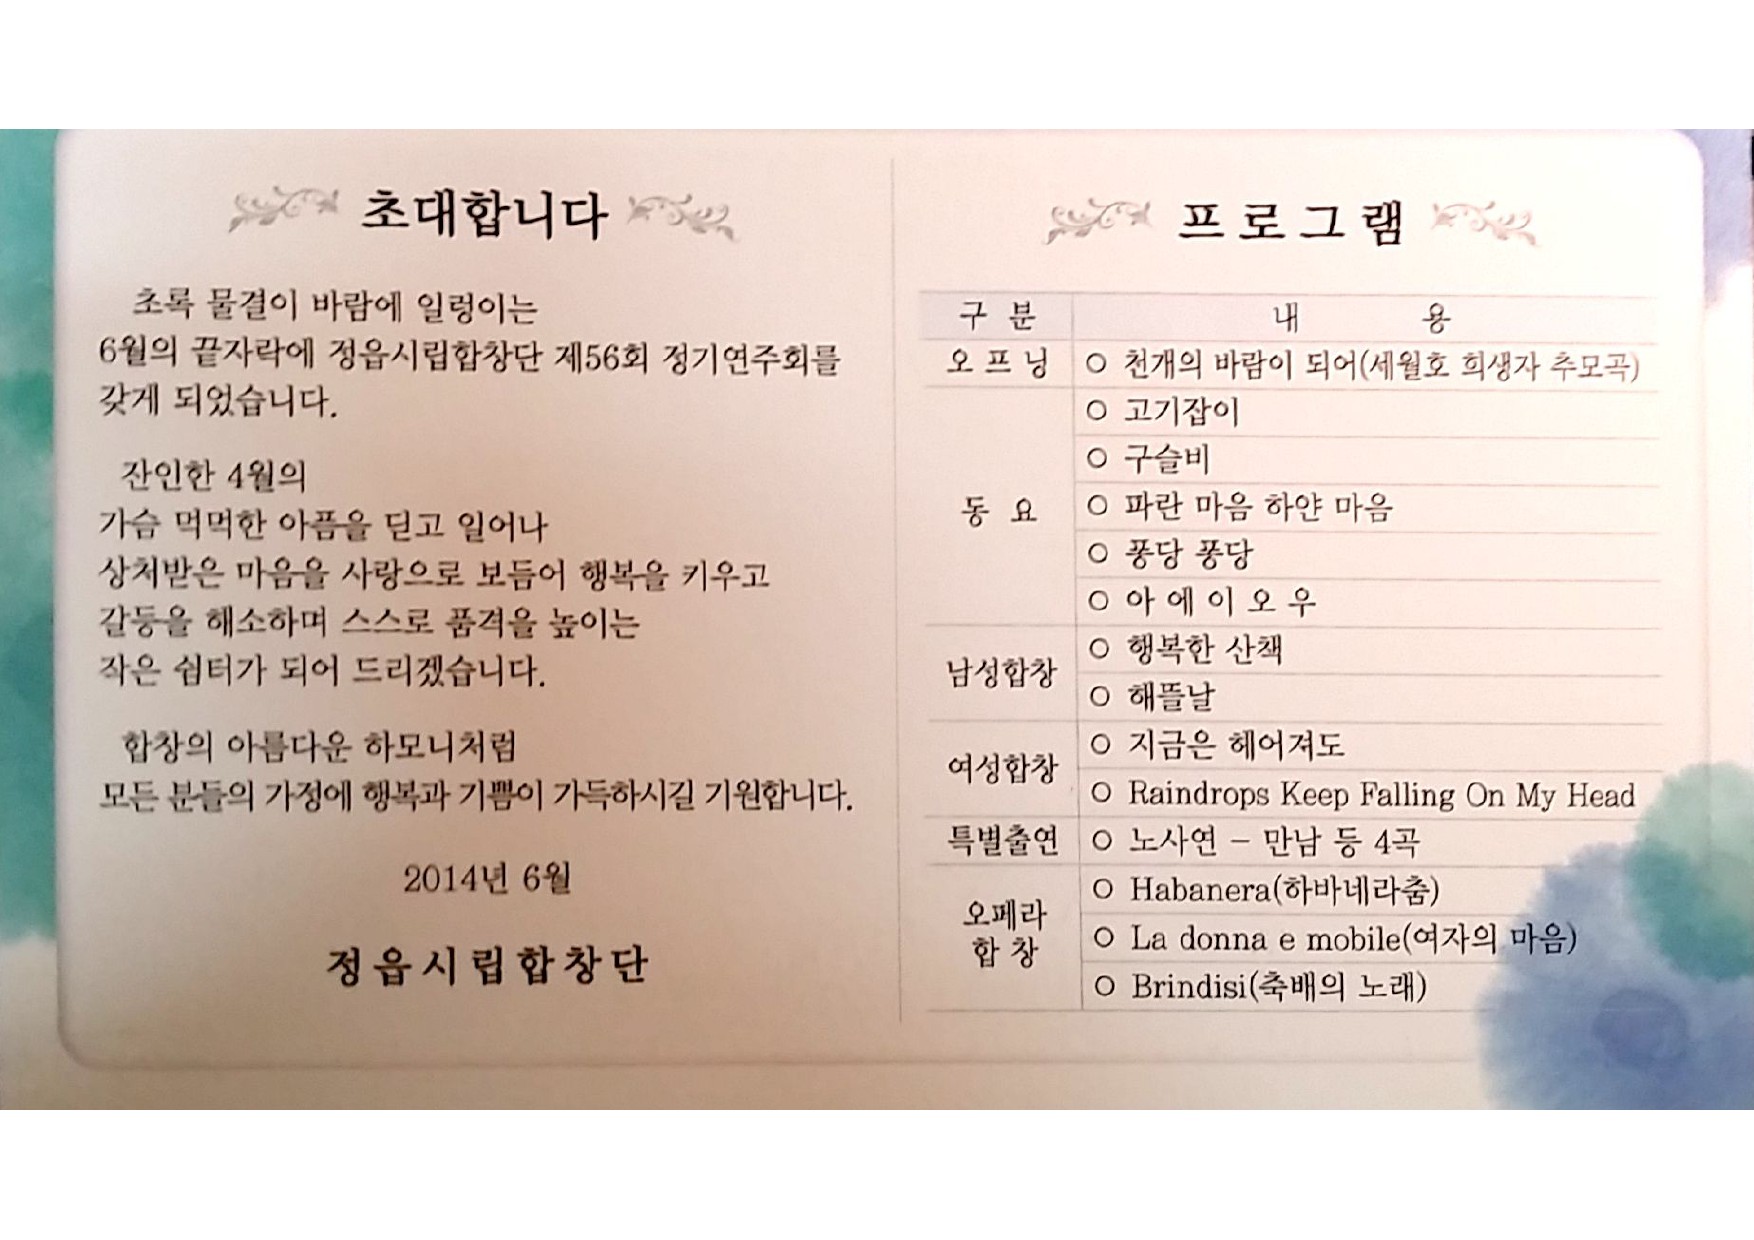 초대합니다
초록 물결이 바람에 일렁이는
6월의 끝자락에 정읍시립합창단 제56회 정기연주회를
갖게 되었습니다.
잔인한 4월의
가슴 먹먹한 아픔을 딛고 일어나
상처받은 마음을 사랑으로 보듬어 행복을 키우고
갈등을 해소하며 스스로 품격을 높이는
작은 쉼터가 되어 드리겠습니다.
합창의 아름다운 하모니처럼
모든 분들의 가정에 행복과 기쁨이 가득하시길 기원합니다.
2014년 6월
정읍시립합창단
프로그램
구 분 내 용
오 프 닝 ○ 천개의 바람이 되어(세월호 희생자 추모곡)
동 요 ○ 고기잡이
○ 구슬비
○ 파란 마음 하얀 마음
○ 퐁당 퐁당
○ 아 에 이 오 우
남성합창 ○ 행복한 산책
○ 해뜰날
여성합창 ○ 지금은 헤어져도
○ Raindrops Keep Falling On My Head
특별출연 ○ 노사연 - 만남 등 4곡
오페라
합 창
○ Habanera(하바네라춤)
○ La donna e mobile(여자의 마음)
○ Brindisi(축배의 노래)